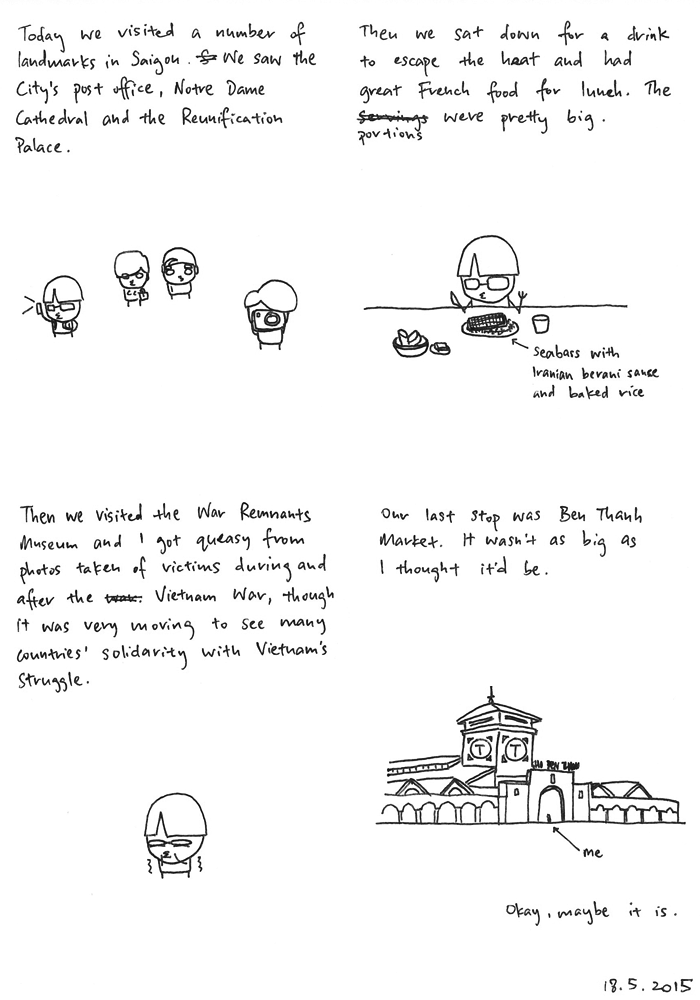 Today we visited a number of
landmarks in Saigon. We saw the
City's post office, Notre Dame
Cathedral and the Reunification
Palace.
Then we sat down for a drink
to escape the heat and had
great French food for lunch. The
Servings were pretty big.
portions
Seabass with
Iranian berani sauce
and baked rice
Then we visited the War Remnants
Museum and I got queasy from
photos taken of victims during and
after the Vietnam War, though
it was very moving to see many
countries' solidarity with Vietnam's
struggle.
Our last stop was Ben Thanh
Market. It wasn't as big as
I thought it'd be.
BEN THANH
me
Okay, maybe it is.
18.5.2015